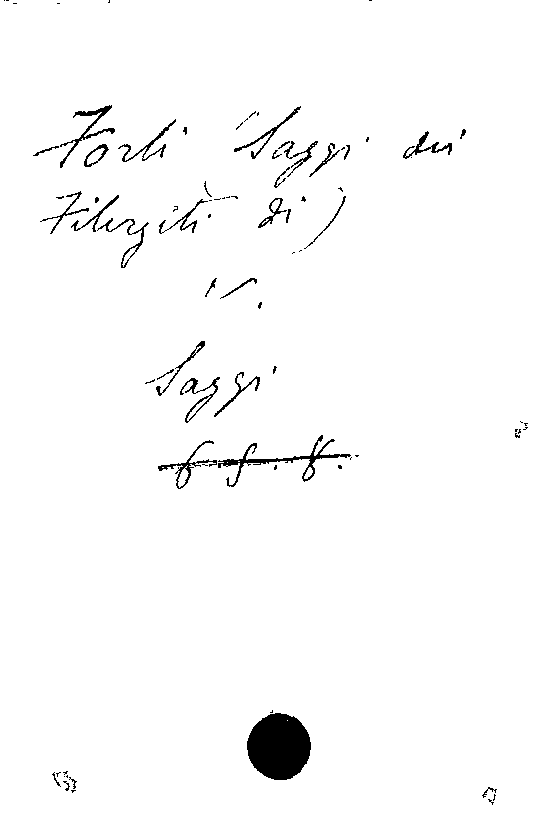 Forlì (Saggi dei
Filergiti di)
v.
Saggi